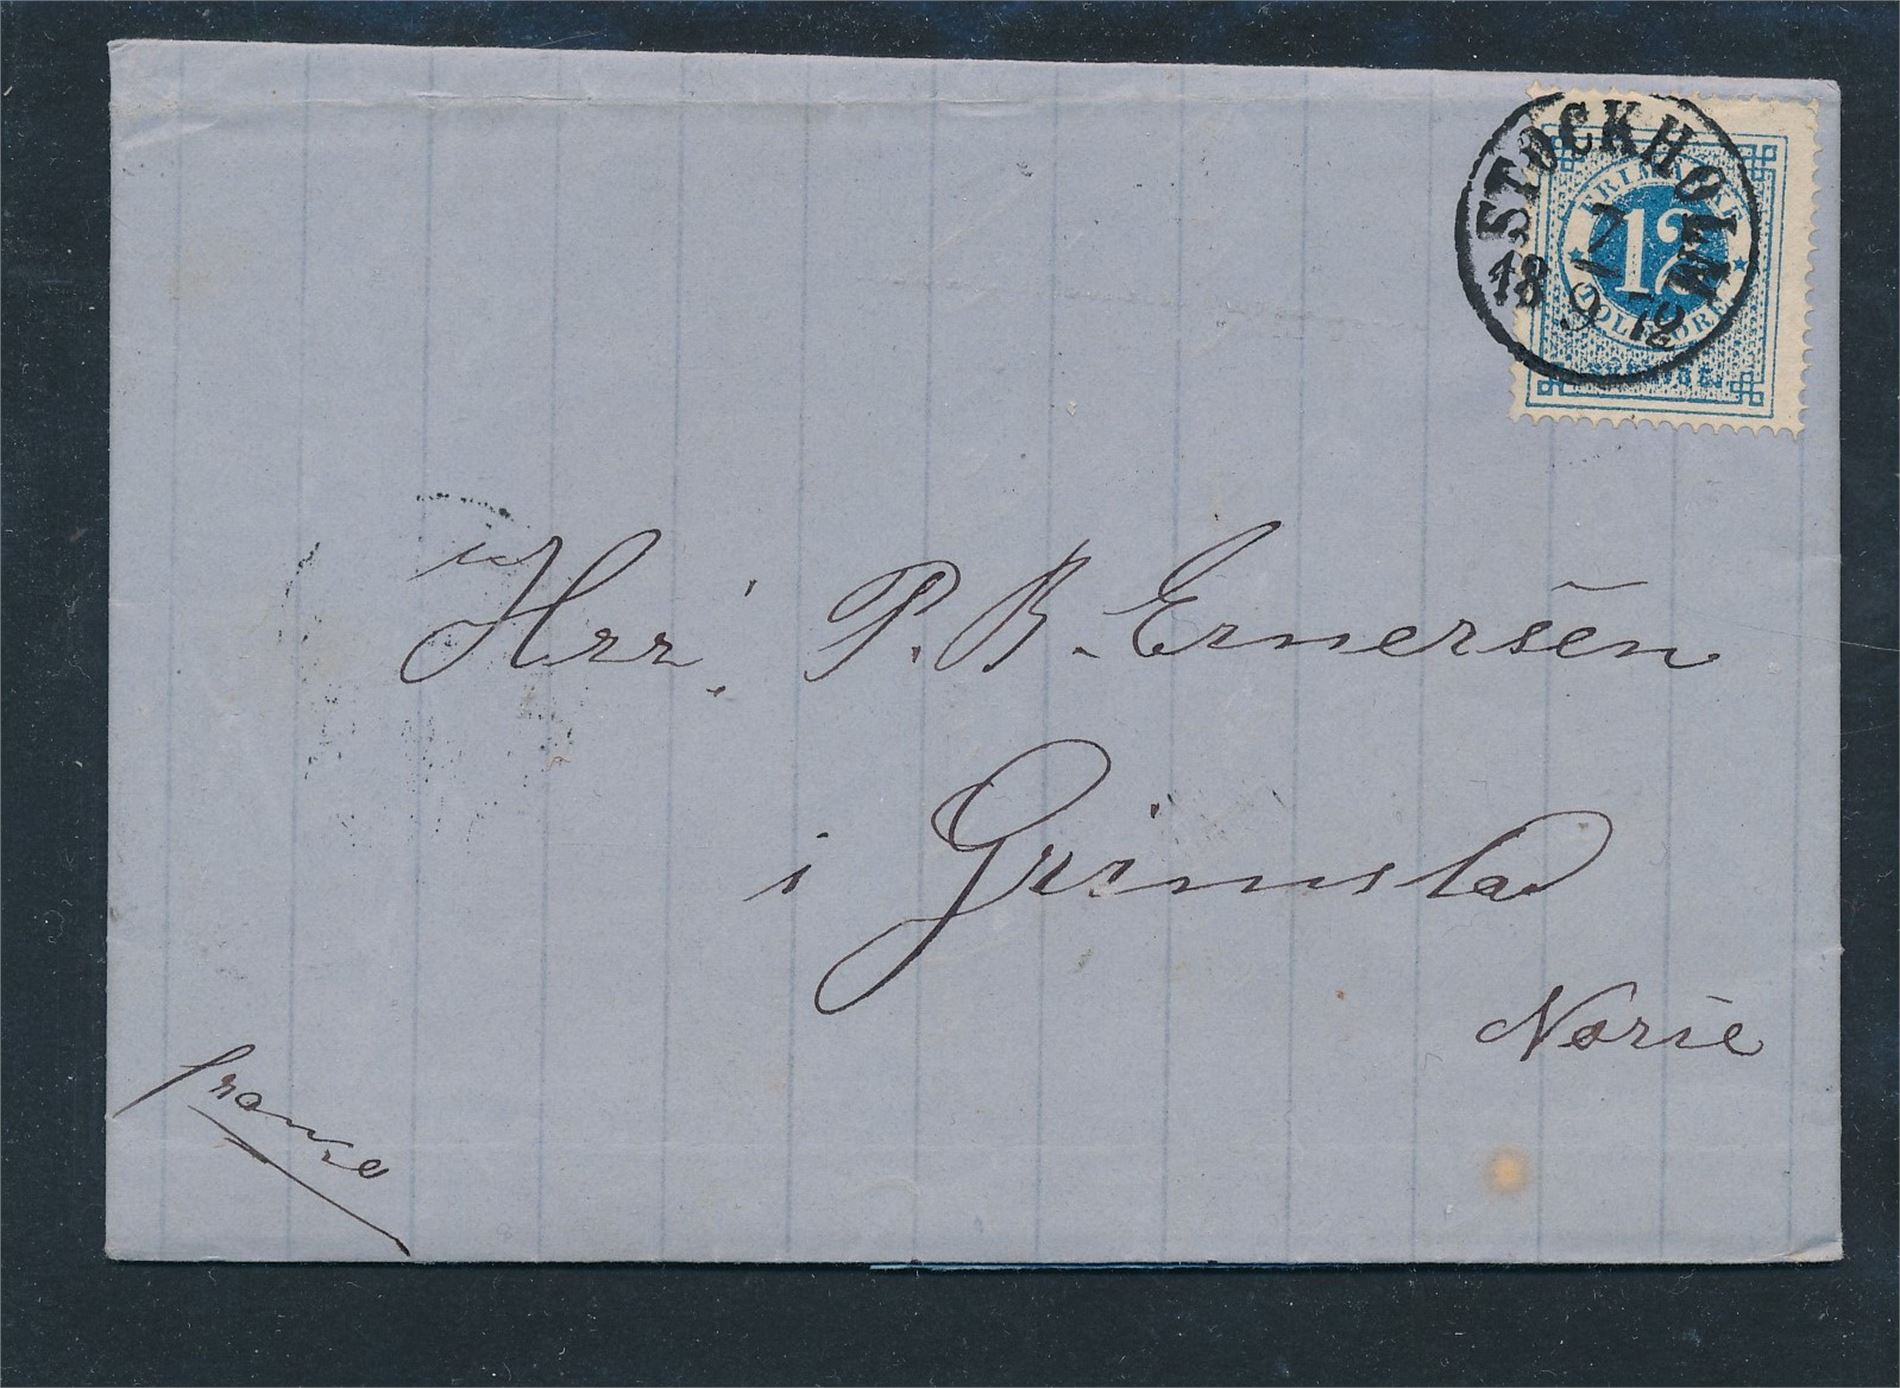 STOCKHOLM
7
18 9 72
FRIMÄRKE
12
TOLF ÖRE
SVERIGE.
Herr P. B. Ernersen
i Grimstad
Norie
franco